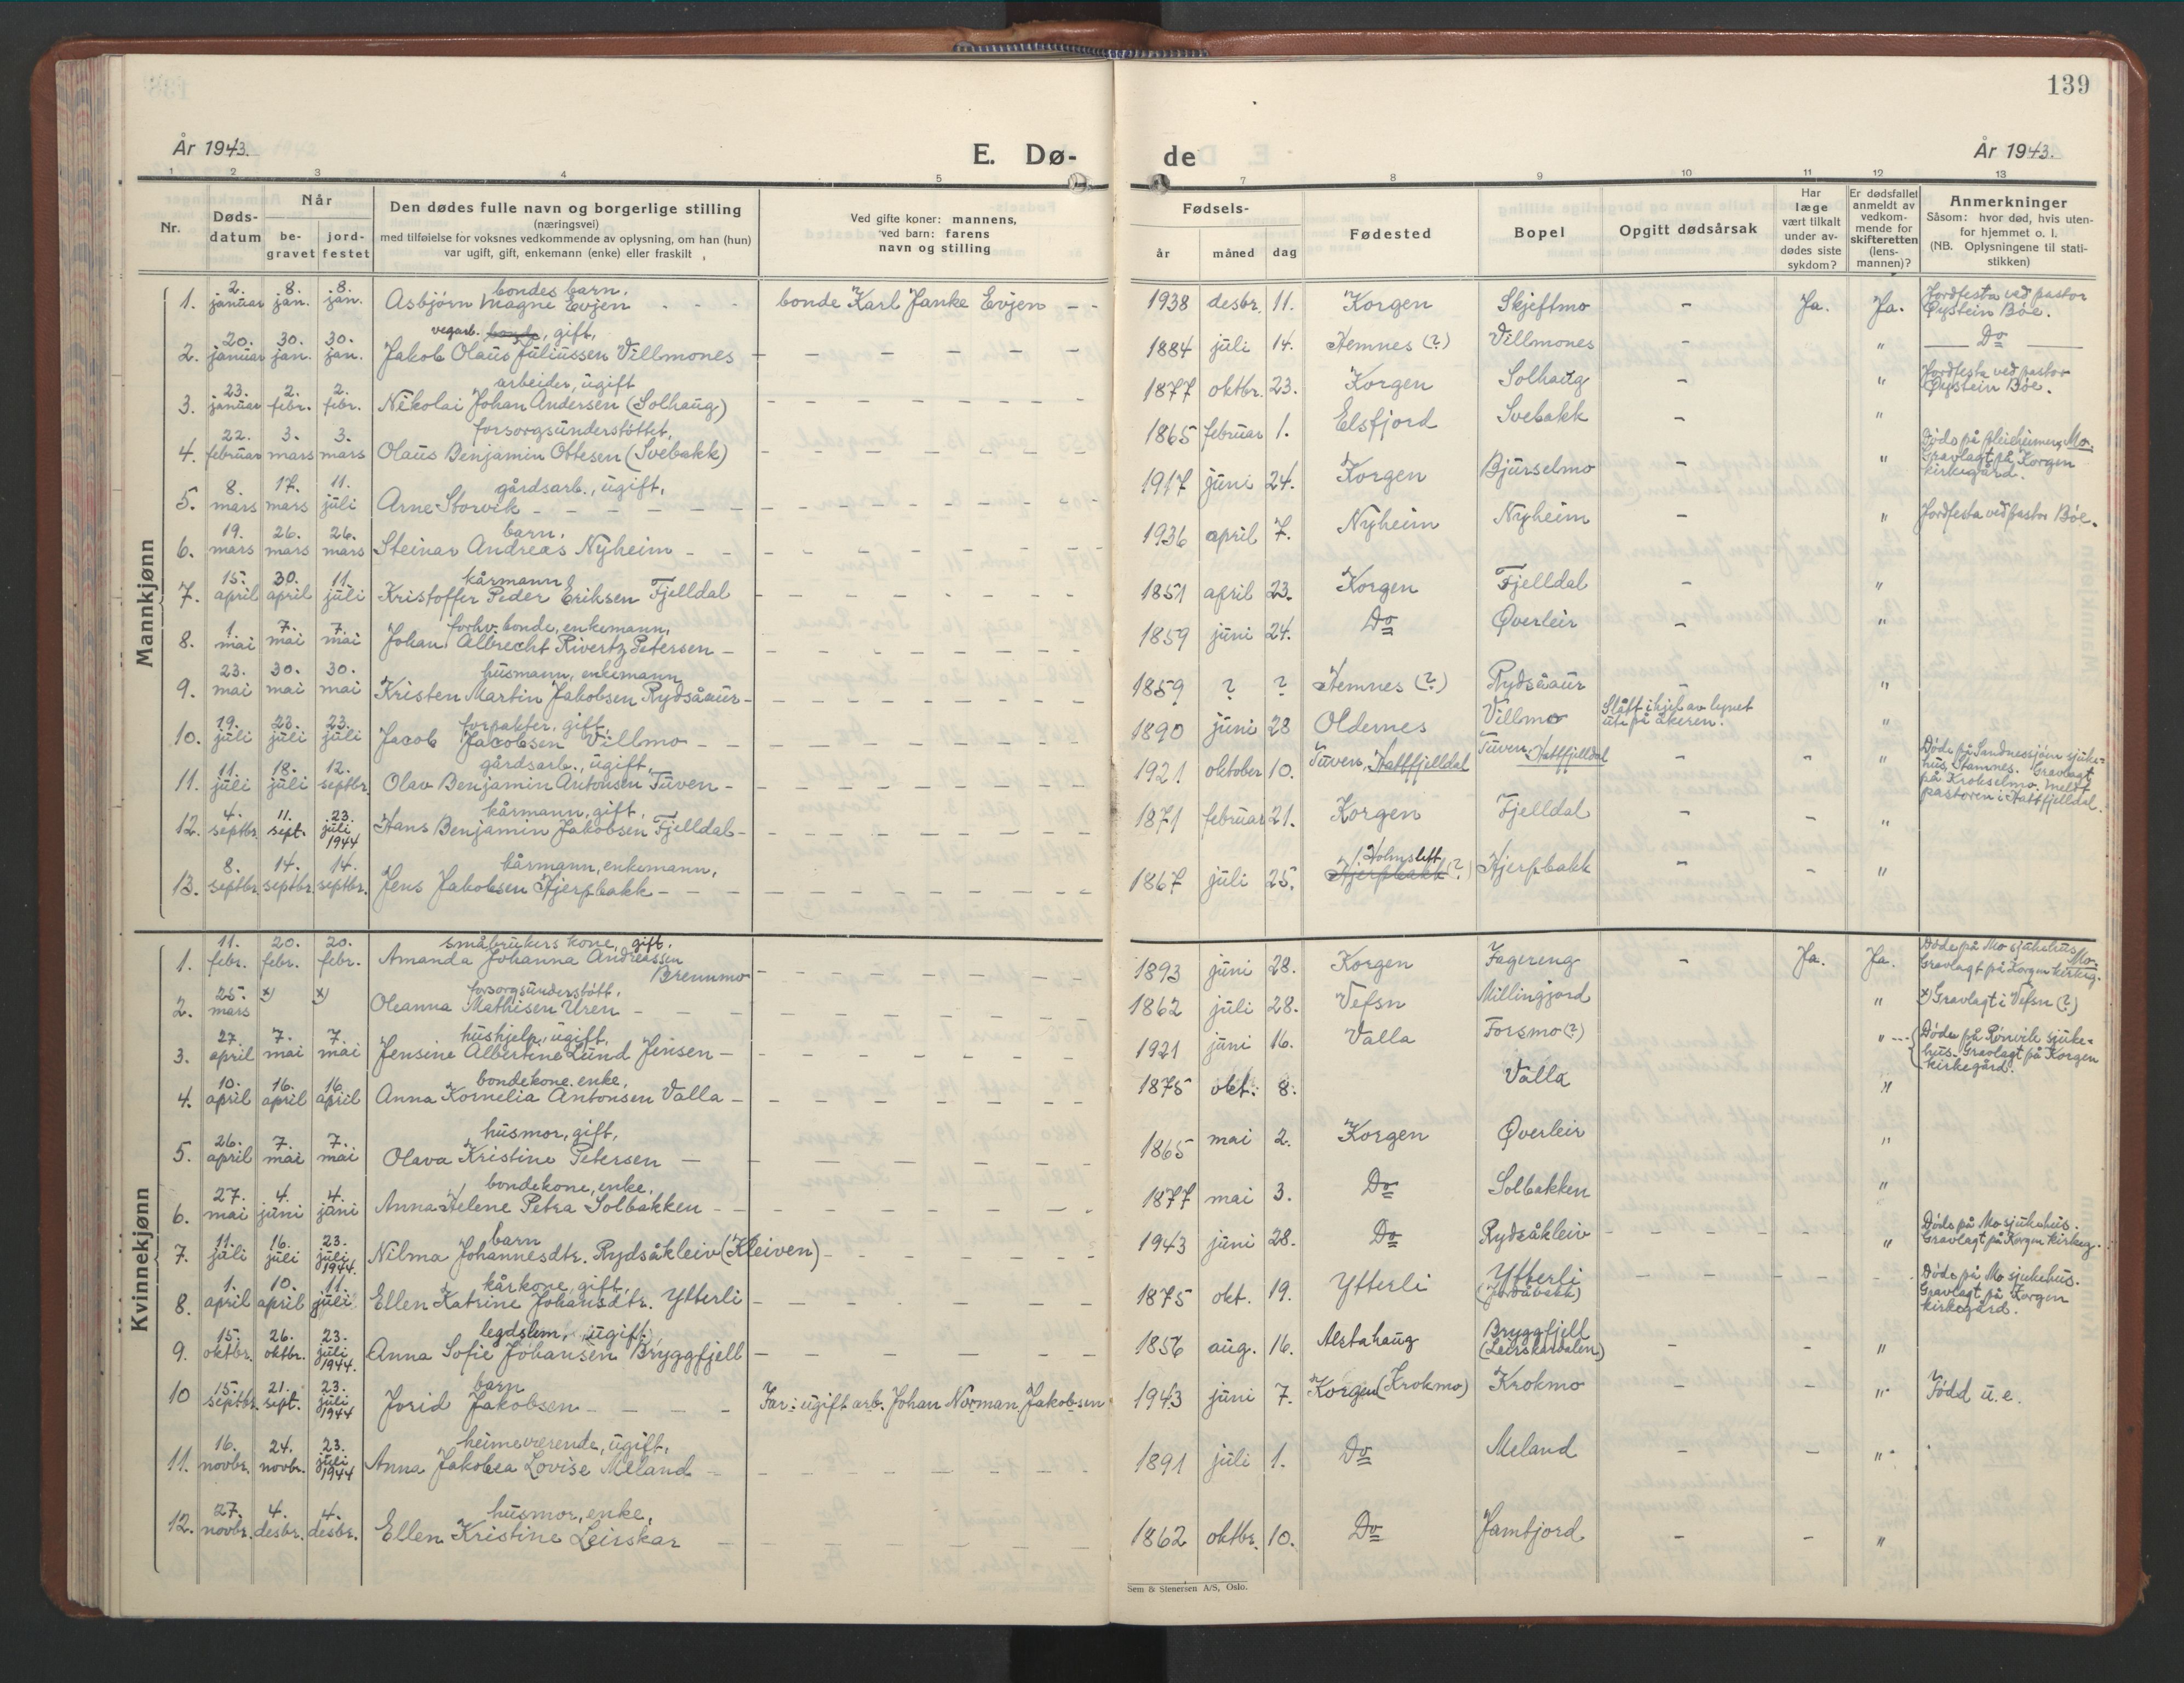 139
År 1943.
E. Dø-
de
År 1943.
1 2 3 4 5 7 8 9 10 11 12 13
Nr.
Døds-
datum
Når
be-
gravet
jord-
festet
Den dødes fulle navn og borgerlige stilling
(næringsvei)
med tilføielse for voksnes vedkommende av oplysning, om han (hun)
var ugift, gift, enkemann (enke) eller fraskilt
Ved gifte koner: mannens,
ved barn: farens
navn og stilling
Fødsels-
år måned dag
Fødested
Bopel
Opgitt dødsårsak
Har
læge
vært tilkalt
under av-
dødes siste
sykdom?
Er dødsfallet
anmeldt av
vedkom-
mende for
skifteretten
(lens-
mannen)?
Anmerkninger
Såsom: hvor død, hvis uten-
for hjemmet o. l.
(NB. Oplysningene til stati-
stikken)
Mannkjønn
2. 8. 8. bondes barn,
1. januar jan. jan. Asbjørn Magne Evjen - - - bonde Karl Janke Evjen - - 1938 desbr. 11. Korgen Skjeftmo - Ja. Ja. Jordfesta ved pastor
Øystein Bøe.
20. 30. 30. vegarb. bonde, gift,
2. januar jan. jan. Jakob Olaus Juliussen Villmones - - - - - - 1884 juli 14. Hemnes (?) Villmones - " Do
23. 2. 2. arbeider, ugift
3. januar febr. febr. Nikolai Johan Andersen (Solhaug) - - - - - - 1877 oktbr. 23. Korgen Solhaug - " Jordfesta ved pastor
Øystein Bøe.
22. 3. 3. forsorgsunderstøttet,
4. februar mars mars Olaus Benjamin Ottesen (Svebakk) - - - - - - 1865 februar 1. Elsfjord Svebakk - " Døde på pleieheimen, Mo.
Gravlagt på Korgen
kirkegård.
8. 17. 11. gårdsarb., ugift,
5. mars mars juli Arne Storvik - - - - - - 1917 juni 24. Korgen Bjurselmo - "
19. 26. 26. barn,
6. mars mars mars Steinar Andreas Nyheim - - - - - - 1936 april 7. Nyheim Nyheim - " Jordfesta ved pastor Bøe.
15. 30. 11. kårmann
7. april april juli Kristoffer Peder Eriksen Fjelldal - - - - - - 1851 april 23. Korgen Fjelldal - "
1. 7. 7. forhv. bonde, enkemann,
8. mai mai mai Johan Albrecht Rivertz Petersen - - - - - - 1859 juni 24. Do Øverleir - "
23. 30. 30. husmann, enkemann
9. mai mai mai Kristen Martin Jakobsen Rydsåaur - - - - - - 1859 ? ? Hemnes (?) Rydsåaur - "
19. 23. 23. forpakter, gift,
10. juli juli juli Jacob Jacobsen Villmo - - - - - - 1890 juni 28 Oldernes Villmo Slått ihjel av lynet
ute på åkeren. "
11. 18. 12. gårdsarb., ugift,
11. juli juli septbr. Olav Benjamin Antonsen Tuven - - - - - - 1921 oktober 10. Tuven, Hattfjelldal Tuven, Hattfjelldal - - " Døde på Sandnessjøen sjuke-
hus, Stamnes. Gravlagt
på Krokselmo. Meldt
pastoren i Hattfjelldal.
4. 11. 23. kårmann, gift,
12. septbr. sept. juli 1944 Hans Benjamin Jakobsen Fjelldal - - - - - - 1871 februar 21. Korgen Fjelldal - - "
8. 14. 14. kårmann, enkemann,
13. septbr. septbr. septbr. Jens Jakobsen Hjerpbakk - - - - - - 1867 juli 25. Holmslett Hjerpbakk (?) Hjerpbakk - - "
Kvinnekjønn
11. 20. 20. småbrukers kone, gift,
1. febr. febr. febr. Amanda Johanna Andreassen
Brennmo - - - - - - 1893 juni 28. Korgen Fagereng - Ja. Ja. Døde på Mo sjukehus, Mo.
Gravlagt på Korgen kirkeg.
25. x) x) forsorgsunderstøtt,
2. mars Oleanna Mathisen Uren - - - - - - 1862 juli 28. Vefsn Millingjord " x) Gravlagt i Vefsn (?)
27. 7. 7. hushjelp, ugift,
3. april mai mai Jensine Albertine Lund Jensen - - - - - - 1921 juni 16. Valla Forsmo (?) " Døde på Rørvik sjuke-
hus. Gravlagt på Korgen
kirkegård.
10. 16. 16. bondekone, enke,
4. april april april Anna Kornelia Antonsen Valla - - - - - - 1875 okt. 8. Valla "
26. 7. 7. husmor, gift,
5. april mai mai Olava Kristine Petersen - - - - - - 1865 mai 2. Korgen Øverleir "
27. 4. 4. bondekone, enke,
6. mai juni juni Anna Helene Petra Solbakken - - - - - - 1877 mai 3. Do Solbakken "
11. 16. 23. barn
7. juli juli juli 1944. Nilma Johannesdtr. Rydsåkleiv (Kleiven) - - - - - - 1943 juni 28. Do Rydsåkleiv - - - - " Døde på Mo sjukehus.
Gravlagt på Korgen kirkeg.
1. 10. 11. kårkone, gift,
8. april april juli Ellen Katrine Johansdtr. Ytterli - - - - - - 1875 okt. 19. Ytterli Ytterli
(Jordåbakk) - - - - - Døde på Mo sjukehus.
Gravlagt på Korgen
kirkegård.
15. 26. 23. legdslem, ugift,
9. oktbr. oktbr. juli 1944. Anna Sofie Johansen Bryggfjell - - - - - - 1856 aug. 16. Alstahaug Bryggfjell
(Leirskardalen) - - "
15. 21. 23. barn
10 septbr. sept. juli 1944 Jorid Jakobsen - - - - Far: ugift arb. Johan Norman Jakobsen 1943 juni 7. Korgen (Krokmo) Krokmo - - " Født u.e.
16. 24. 23. heimeværende, ugift,
11. novbr. novbr. juli 1944 Anna Jakobea Lovise Meland - - - - - - 1891 juli 1. Do Meland - - "
27. 4. 4. husmor, enke,
12. novbr. desbr. desbr. Ellen Kristine Leirskar - - - - - - 1862 oktbr. 10. Do Jamtjord - - "
Sem & Stenersen A/S, Oslo.